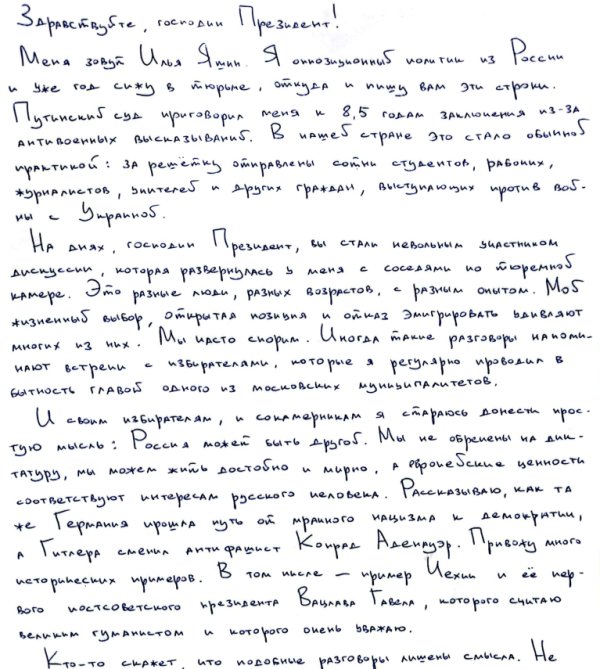 Здравствуйте, господин Президент!
Меня зовут Илья Яшин. Я оппозиционный политик из России
и уже год сижу в тюрьме, откуда и пишу вам эти строки.
Путинский суд приговорил меня к 8,5 годам заключения из-за
антивоенных высказываний. В нашей стране это стало обычной
практикой: за решётку отправлены сотни студентов, рабочих,
журналистов, учителей и других граждан, выступающих против вой-
ны с Украиной.
На днях, господин Президент, вы стали невольным участником
дискуссии, которая развернулась у меня с соседями по тюремной
камере. Это разные люди, разных возрастов, с разным опытом. Мой
жизненный выбор, открытая позиция и отказ эмигрировать удивляют
многих из них. Мы часто спорим. Иногда такие разговоры напоми-
нают встречи с избирателями, которые я регулярно проводил в
бытность главой одного из московских муниципалитетов.
И своим избирателям, и сокамерникам я стараюсь донести прос-
тую мысль: Россия может быть другой. Мы не обречены на дик-
татуру, мы можем жить достойно и мирно, а европейские ценности
соответствуют интересам русского человека. Рассказываю, как та
же Германия прошла путь от мрачного нацизма к демократии,
а Гитлера сменил антифашист Конрад Аденауэр. Привожу много
исторических примеров. В том числе – пример Чехии и её пер-
вого постсоветского президента Вацлава Гавела, которого считаю
великим гуманистом и которого очень уважаю.
Кто-то скажет, что подобные разговоры лишены смысла. Не